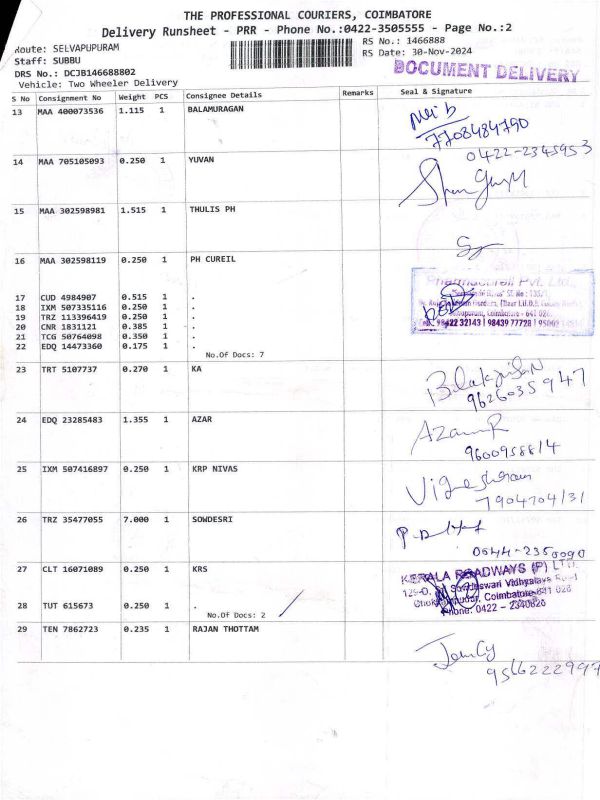 THE PROFESSIONAL COURIERS, COIMBATORE
Delivery Runsheet - PRR - Phone No.:0422-3505555 - Page No.:2
Route: SELVAPUPURAM
RS No.: 1466888
Staff: SUBBU
RS Date: 30-Nov-2024
DRS No.: DCJB146688802
DOCUMENT DELIVERY
Vehicle: Two Wheeler Delivery
S No Consignment No Weight PCS Consignee Details Remarks Seal & Signature
13 MAA 400073536 1.115 1 BALAMURAGAN
7708484790
0422-2345953
14 MAA 705105093 0.250 1 YUVAN
15 MAA 302598981 1.515 1 THULIS PH
16 MAA 302598119 0.250 1 PH CUREIL
Pvt. Ltd.,
Coimbatore - 641 026.
98422 32143 | 98439 77728 |
17 CUD 4984907 0.515 1 .
18 IXM 507335116 0.250 1 .
19 TRZ 113396419 0.250 1 .
20 CNR 1831121 0.385 1 .
21 TCG 50764098 0.350 1 .
22 EDQ 14473360 0.175 1 .
No.Of Docs: 7
23 TRT 5107737 0.270 1 KA
9626035947
24 EDQ 23285483 1.355 1 AZAR
Azar R
9600958814
25 IXM 507416897 0.250 1 KRP NIVAS
7904704131
26 TRZ 35477055 7.000 1 SOWDESRI
27 CLT 16071089 0.250 1 KRS
KERALA ROADWAYS (P) LTD.
Vidhyalaya Road
Coimbatore-641 026
Phone: 0422 - 2340826
28 TUT 615673 0.250 1 .
No.Of Docs: 2
29 TEN 7862723 0.235 1 RAJAN THOTTAM
9566222997